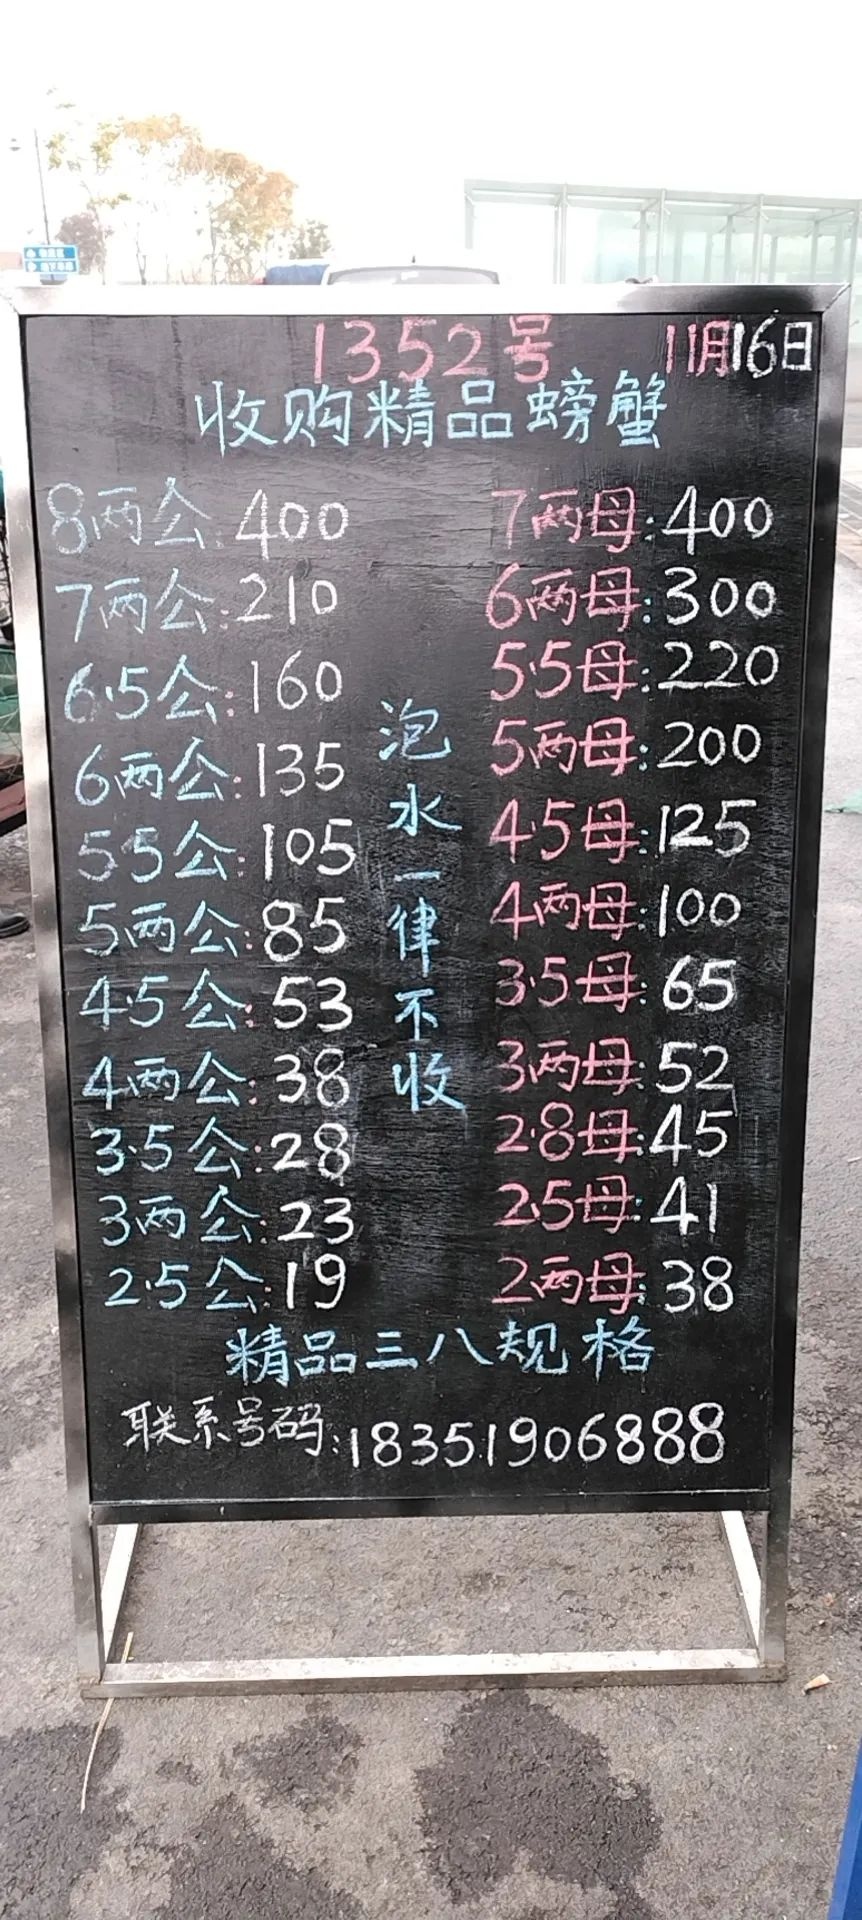 1352号 11月16日
收购精品螃蟹
8两公:400
7两公:210
6.5公:160
6两公:135
55公:105
5两公:85
4.5公:53
4两公:38
3.5公:28
3两公:23
2.5公:19
泡水一律不收
7两母:400
6两母:300
5.5母:220
5两母:200
4.5母:125
4两母:100
3.5母:65
3两母:52
2.8母:45
2.5母:41
2两母:38
精品三八规格
联系号码:18351906888